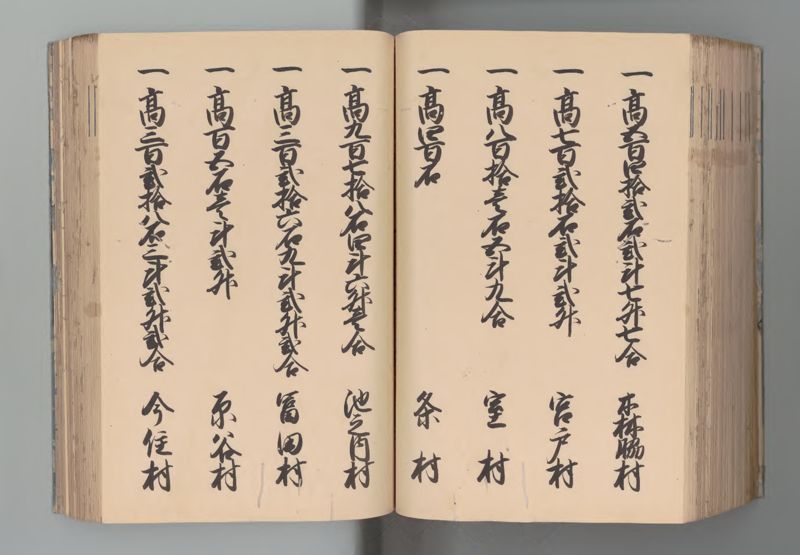 一 高五百四拾弐石弐斗七升七合 木林脇村
一 高七百弐拾石弐斗弐升 宮戸村
一 高八百拾壱石五斗九合 室村
一 高四百石 条村
一 高九百七拾八石四斗六升壱合 池之内村
一 高三百弐拾六石九斗弐升弐合 冨田村
一 高百五石壱斗弐升 原谷村
一 高三百弐拾八石三斗弐升弐合 今住村